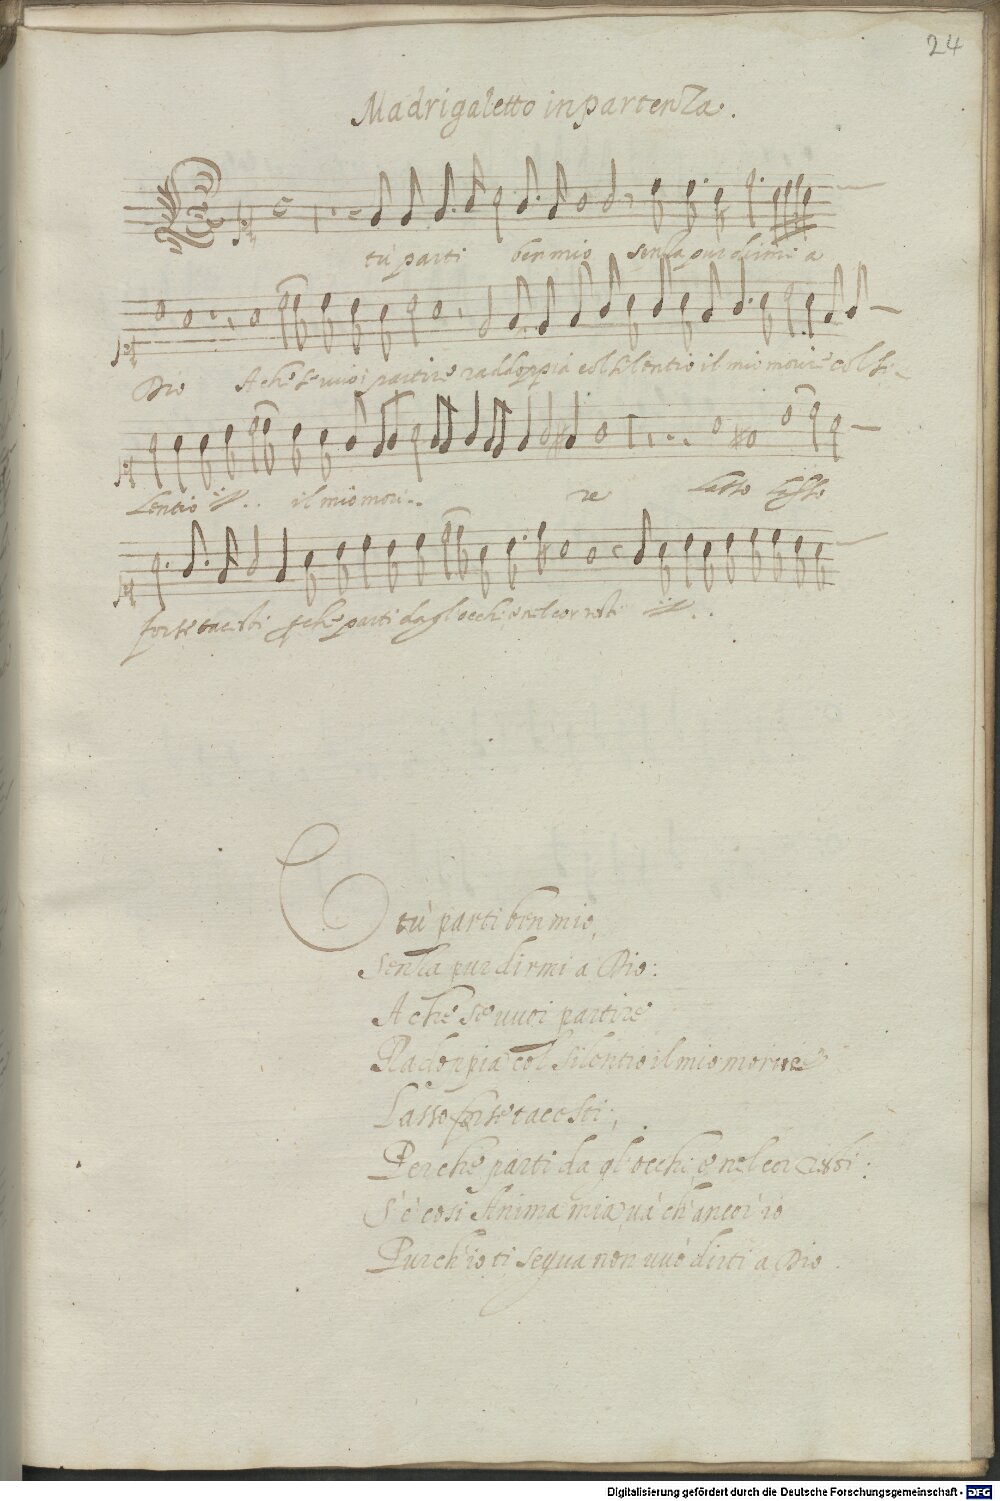 24
Madrigaletto in partenza.
tù parti ben mio senza pur dirmi a
Dio A che se vuoi partire raddoppia col silentio il mio morire col si-
lentio ij.. il mio mori..re Lasso Lasso
forse tacesti perche parti da gl'occhi e nel cor resti ij..
E tù parti ben mio,
Senza pur dirmi à Dio:
A che se vuoi partire
Radoppia col silentio il mio morire
Lasso forse tacesti;
Perche parti da gl'occhi e nel cor resti:
S'è così Anima mia và ch'ancor io
Purch'io ti segua non vuò dirti a Dio.
Digitalisierung gefördert durch die Deutsche Forschungsgemeinschaft - DFG